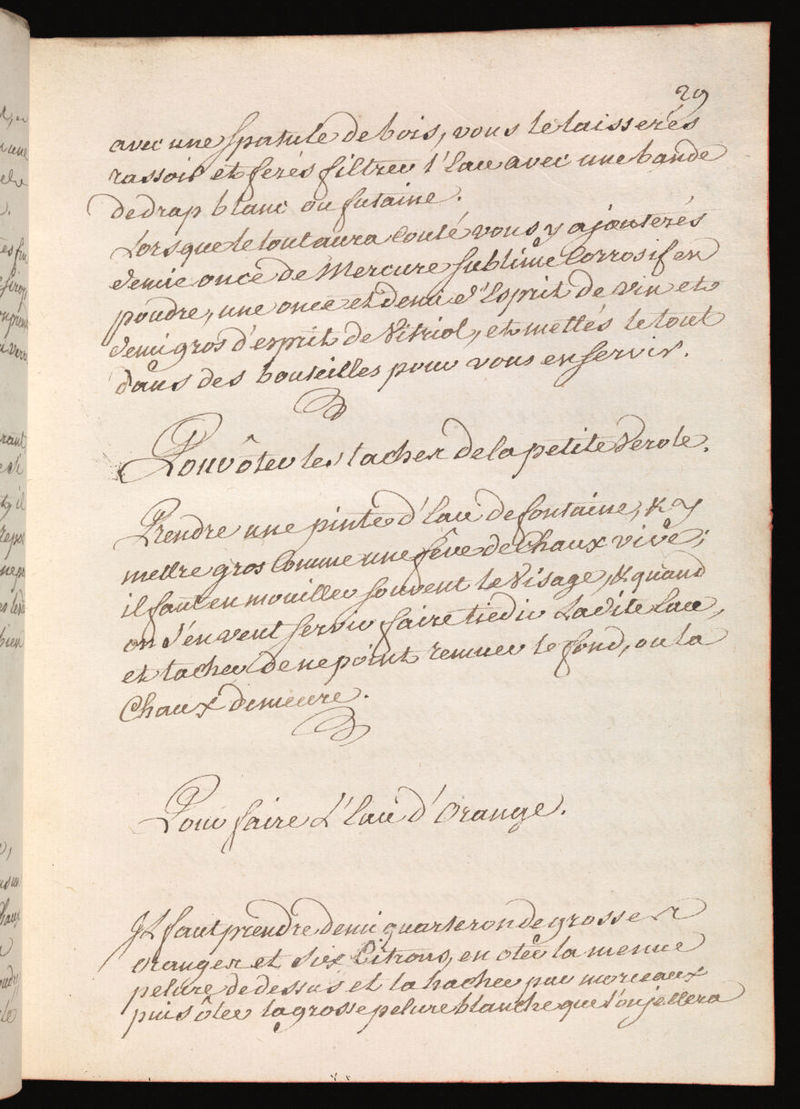 29
avec une spatule de bois, vous le laisserés
rassoir et ferés filtrer l'Eau avec une bande
de drap blanc ou futaine.
Lorsque le tout aura coulé vous y ajouterés
demie once de Mercure sublimé Corrosif en
poudre, une once et demie d'Esprit de vin et
demi gros d'esprit de Vitriol, et mettés le tout
dans des bouteilles pour vous en servir.
Pour ôter les taches de la petite Verole.
Prendre une pinte d'Eau de fontaine, & y
mettre gros Comme une fêve de Chaux vive;
il faut en mouiller souvent le Visage, & quand
on s'en veut servir faire tiedir Ladite Eau,
et tacher de ne point remuer le fond, ou la
Chaux demeure.
Pour faire L'Eau d'Orange.
Il faut prendre demi quarteron de grosses
oranges et Six Citrons, en oter la menue
pelure de dessus et la hacher par morceaux
puis ôter la grosse pelure blanche que l'on jettera